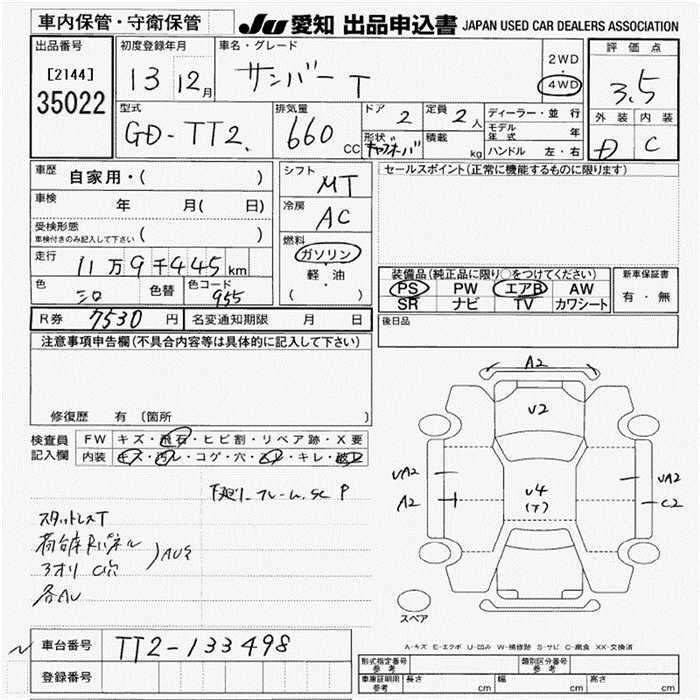 車内保管・守衛保管
JU 愛知 出品申込書 JAPAN USED CAR DEALERS ASSOCIATION
出品番号
[2144]
35022
初度登録年月
13 12月
車名・グレード
サンバー T
2WD
・
4WD
評価点
3.5
外装 内装
D C
型式
GD-TT2
排気量
660 CC
ドア
2
形状
キャブオーバ
定員
2人
積載
kg
ディーラー・並行
モデル年式 年
ハンドル 左・右
車歴
自家用・( )
車検
年 月( 日)
受検形態
車検付きのみ記入して下さい ( )
走行
11万9千445km
色
シロ
色替
色コード
955
シフト
MT
冷房
AC
燃料
ガソリン
軽・油
( )
セールスポイント(正常に機能するものに限ります)
装備品(純正品に限り○をつけてください)
PS PW エアB AW
SR ナビ TV カワシート
新車保証書
有・無
R券 7530円 名変通知期限 月 日
後日品
注意事項申告欄(不具合内容等は具体的に記入して下さい)
修復歴 有(箇所 )
検査員
記入欄
FW キズ・飛石・ヒビ割・リペア跡・X要
内装 キズ・汚レ・コゲ・穴・ キレ・破レ
下廻リ フレーム SC P
スタットレスT
荷台床Rパネル
アオリ C穴
各AU
A2
U2
UA2
A2
U4
(T)
UA2
C2
スペア
A-キズ E-エクボ U-凹み W-補修跡 S-サビ C-腐食 XX-交換済
車台番号 TT2-133498
登録番号
形式指定番号
参考
類別区分番号
参考
車庫証明用
参考
長さ cm 幅 cm 高さ cm